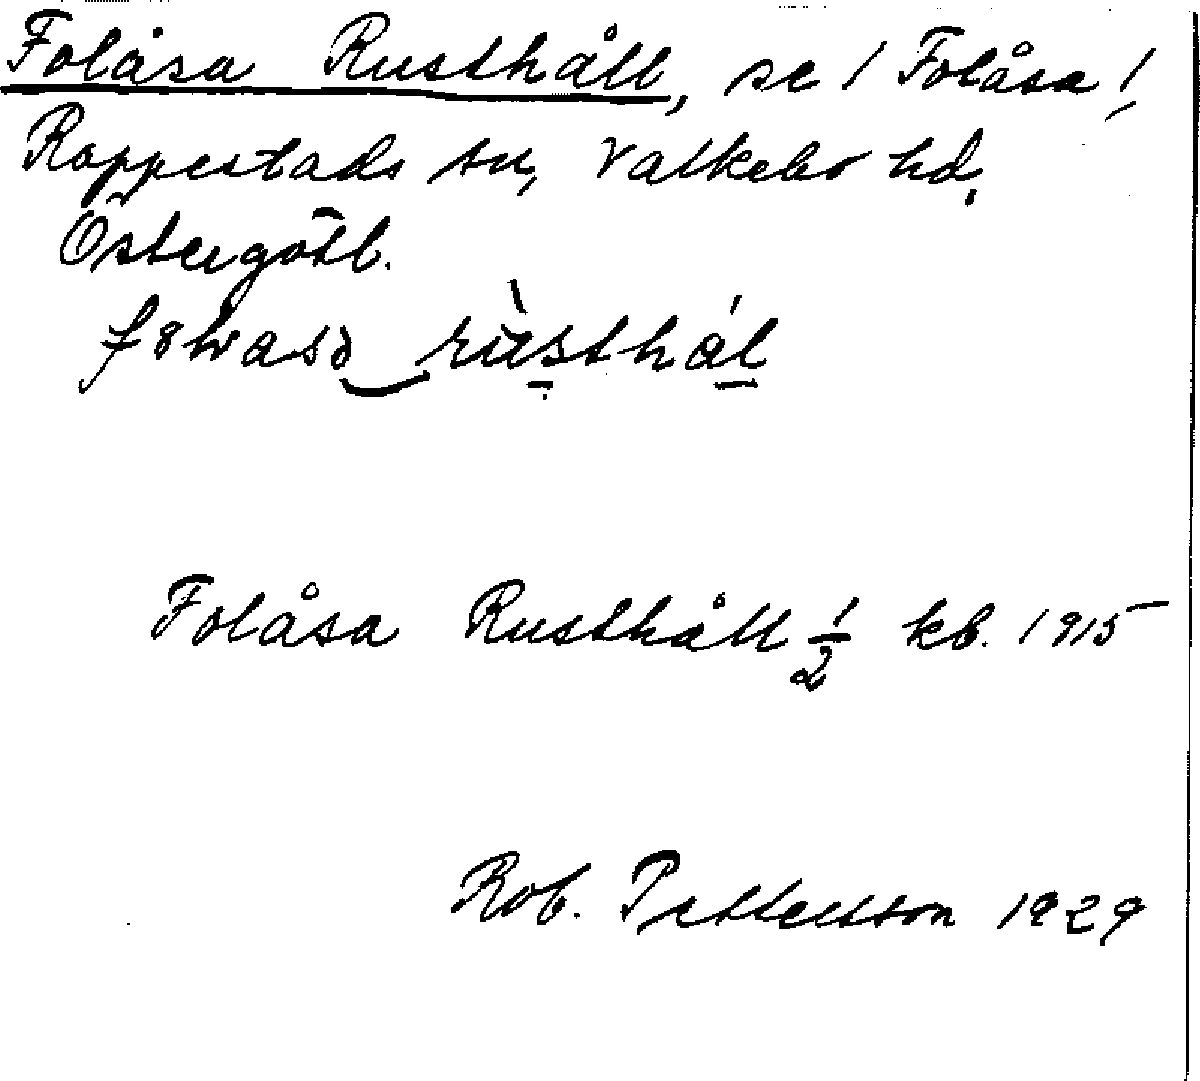 Folåsa Rusthåll, se / Folåsa /,
Rappestads sn, Valkebo hd,
Östergötl.
Folåsa Rusthåll 1/2 kb. 1915
Rob. Pettersson 1929